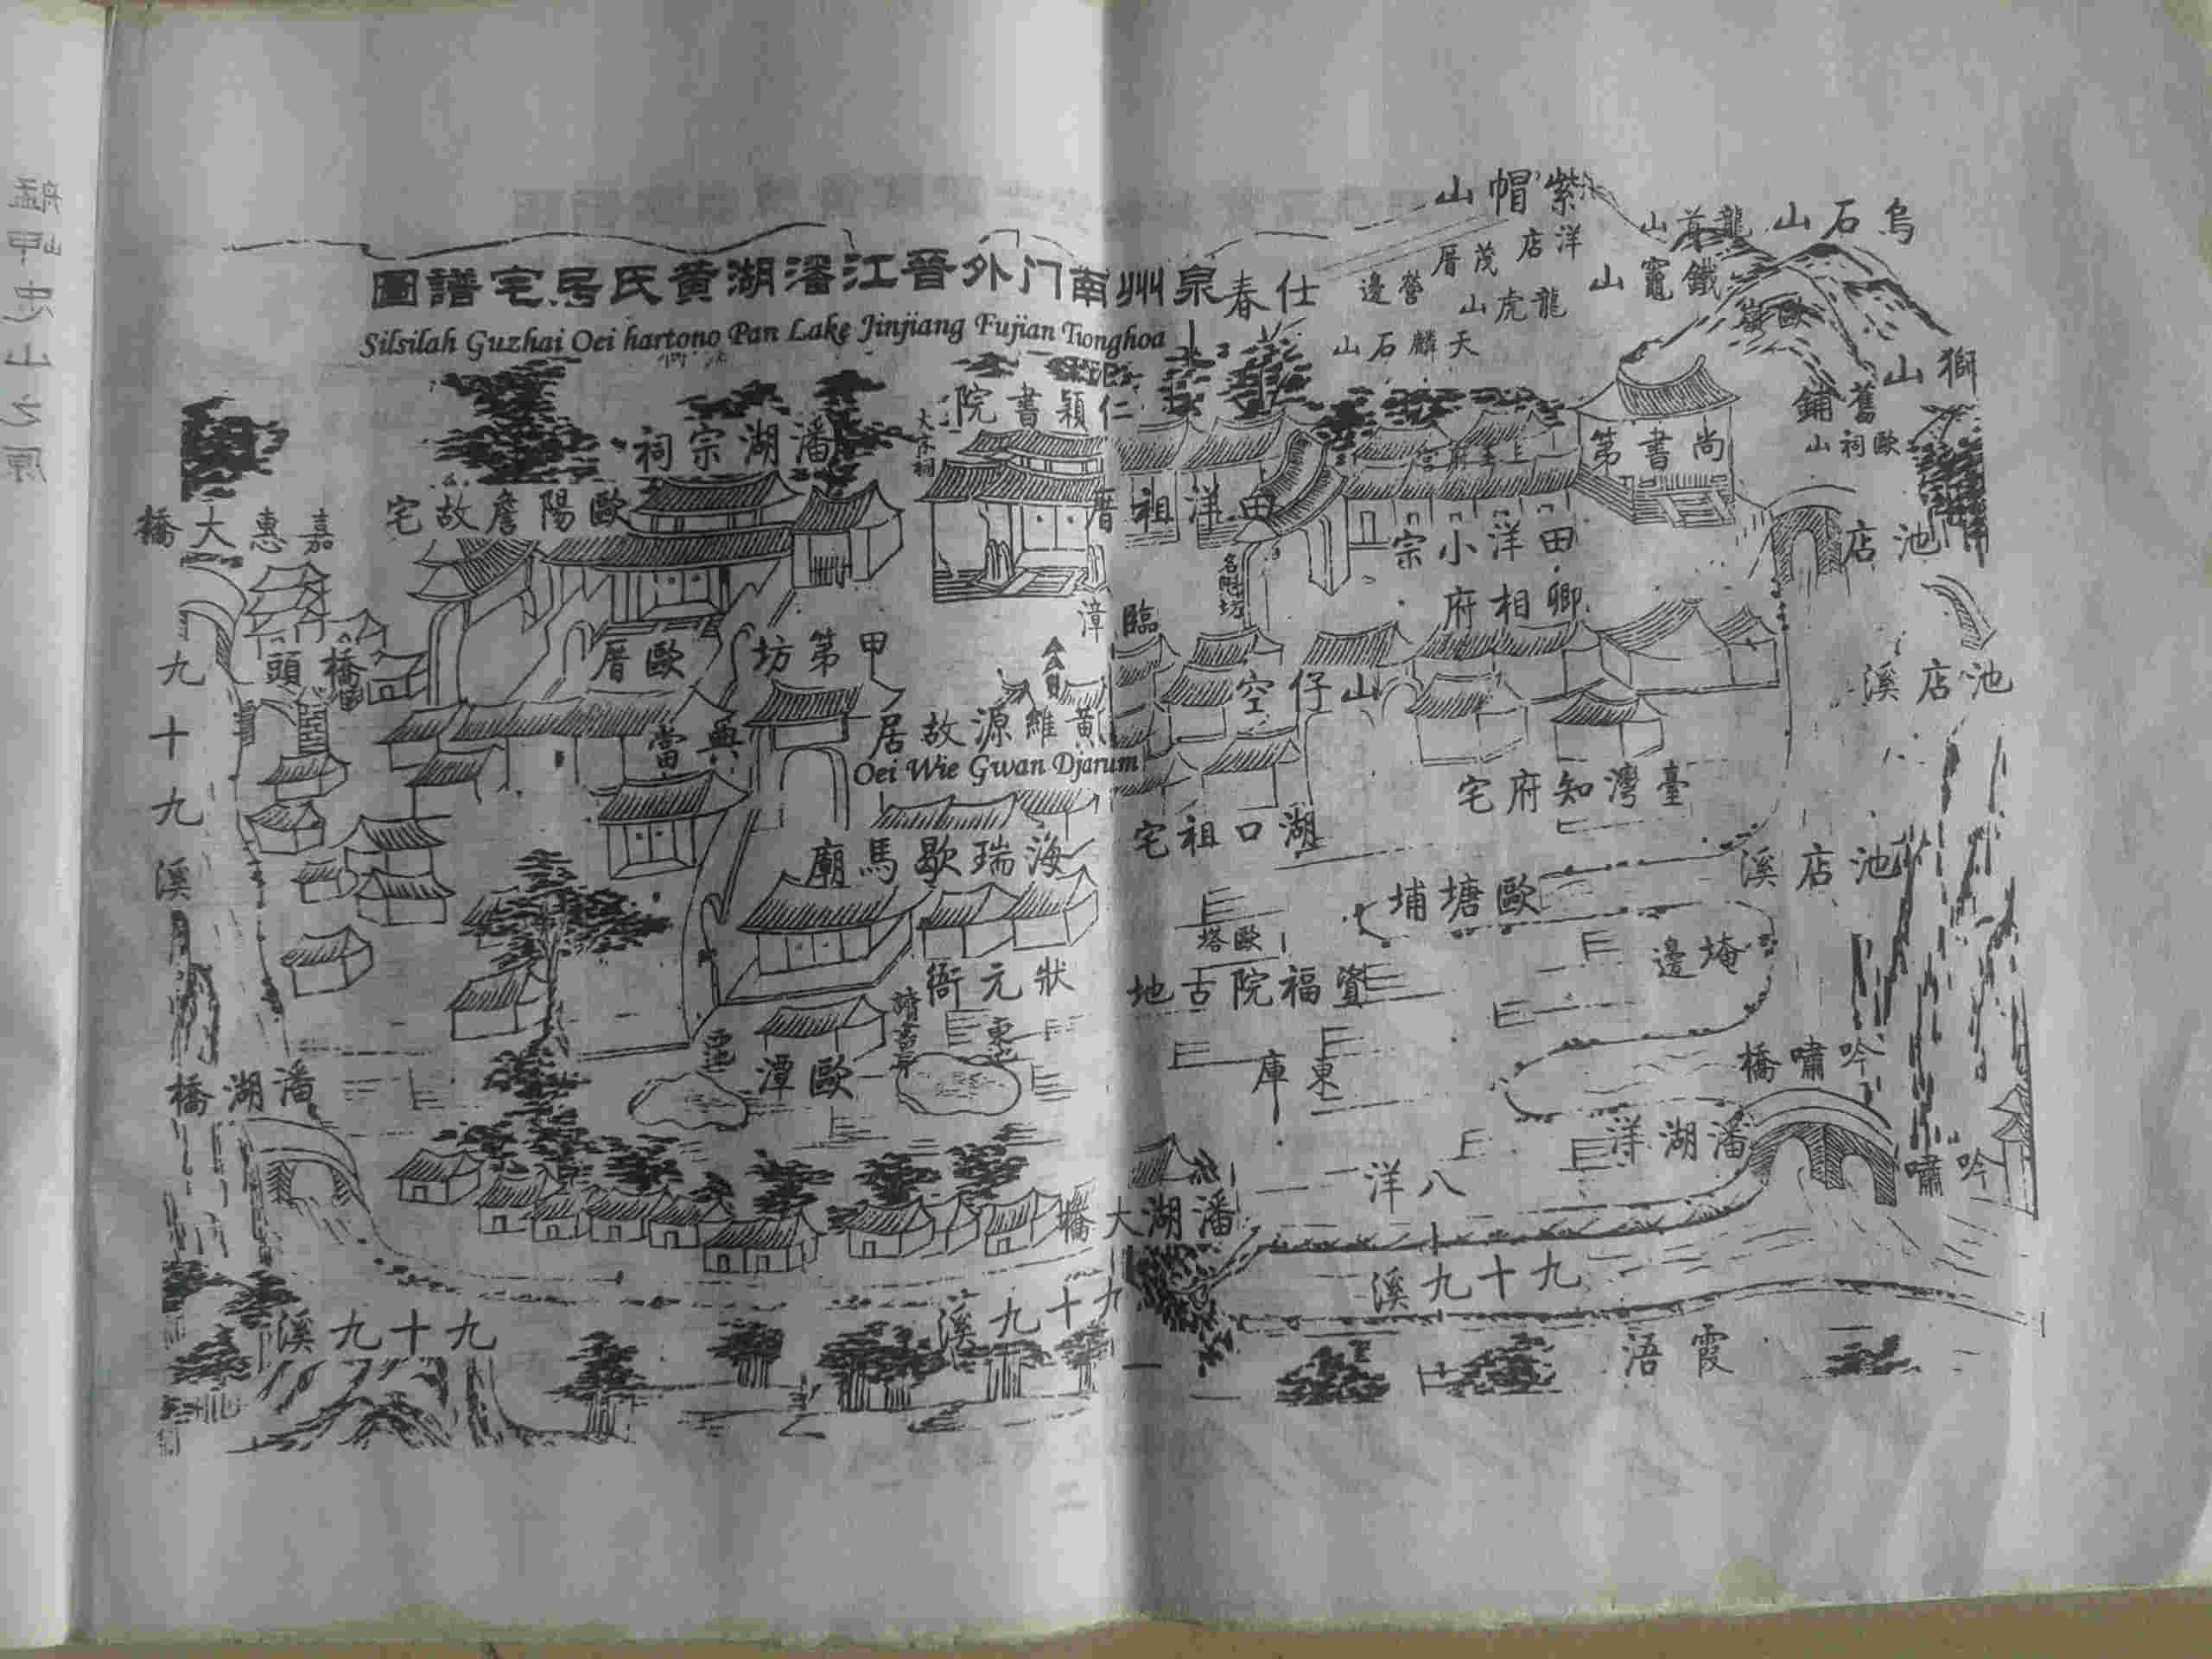 泉州南门外晉江瀋湖黄氏居宅譜圖
Silsilah Guzhai Oei hartono Pan Lake Jinjiang Fujian Tionghoa
紫帽山
烏石山
龍首山
洋店
茂厝
營邊
鐵竈山
龍虎山
仕春
天麟石山
歐嶺
獅山
舊鋪
歐祠山
尚書第
上主府宮
仁穎書院
大宗祠
潘湖宗祠
歐陽詹故宅
嘉惠大橋
田洋祖厝
田洋小宗
池店
名賢坊
卿相府
臨漳
甲第坊
歐厝
橋頭
九十九溪
山仔空
池店溪
黃維源故居
Oei Wie Gwan Djarum
典當
臺灣知府宅
湖口祖宅
海瑞歇馬廟
池店溪
歐塘埔
歐塔
埯邊
資福院古地
狀元衙
讀書亭
東池
歐潭
東庫
吟嘯橋
潘湖橋
潘湖洋
吟嘯
八洋
潘湖大橋
九十九溪
九十九溪
九十九溪
霞浯
艋舺忠山之原